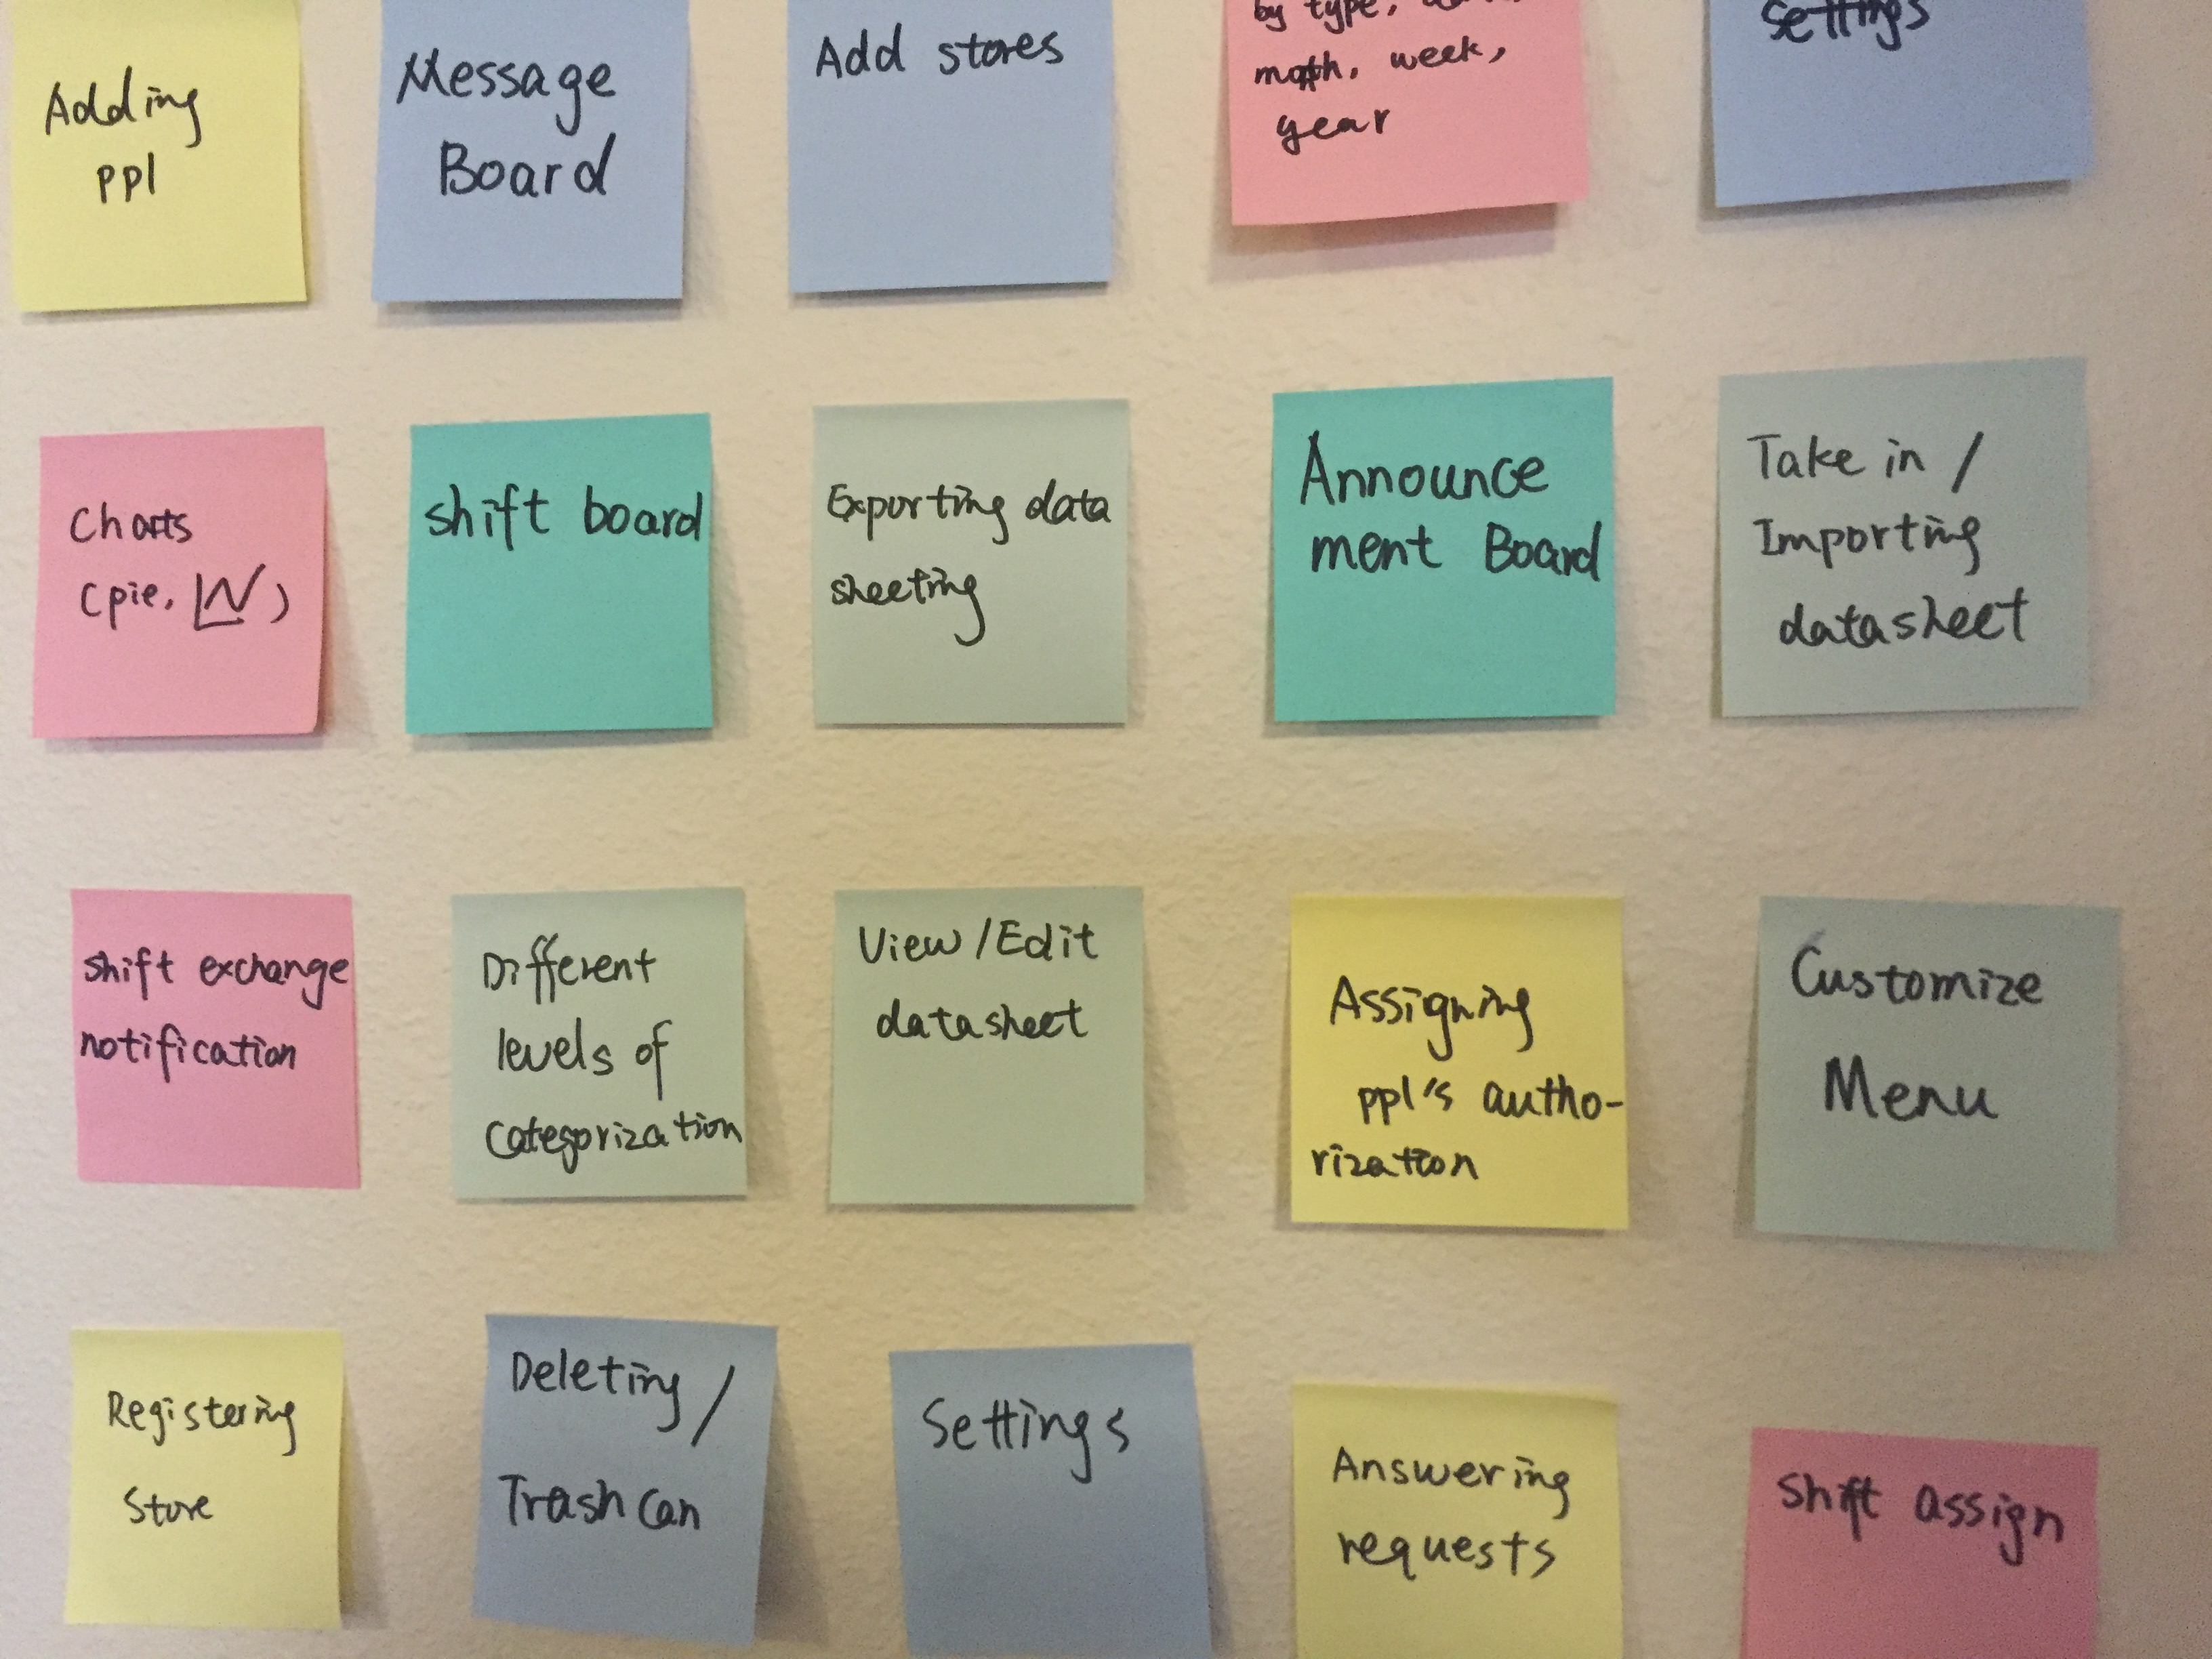 Adding
ppl
Message
Board
Add stores
by type,
month, week,
year
Settings
Charts
(pie, )
shift board
Exporting data
sheeting
Announce
ment Board
Take in /
Importing
datasheet
shift exchange
notification
Different
levels of
categorization
View/Edit
datasheet
Assigning
ppl's autho-
rization
Customize
Menu
Registering
Store
Deleting/
Trash Can
Settings
Answering
requests
shift assign